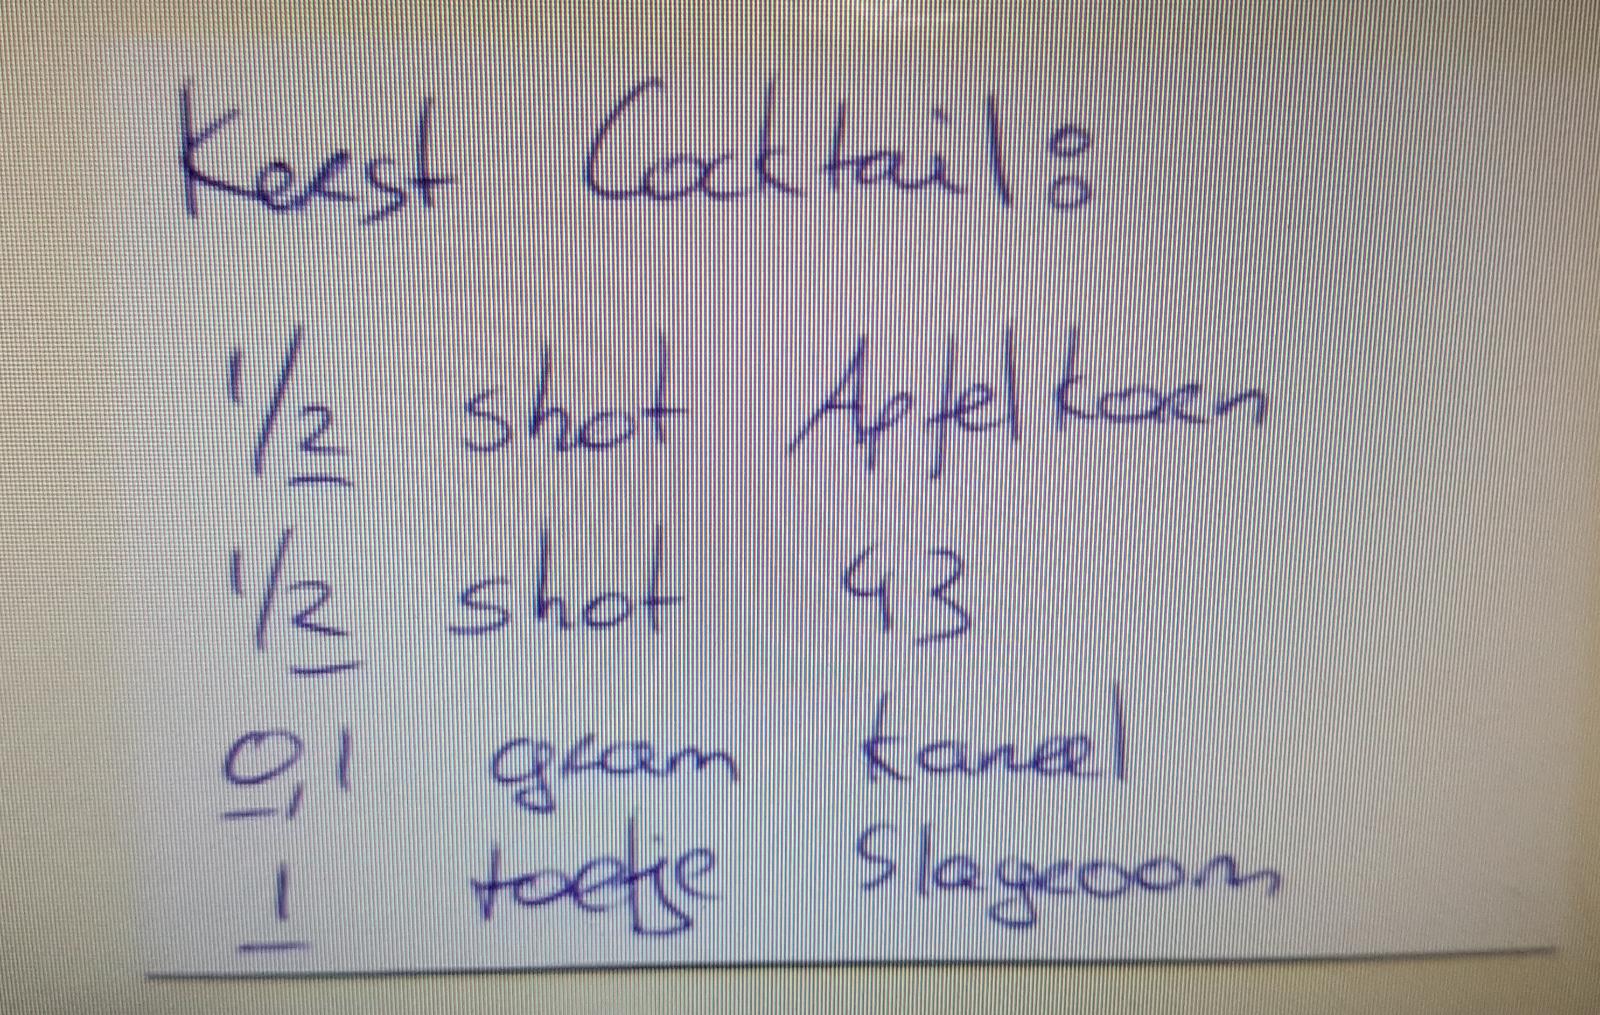 Kerst Cocktail:
1/2 shot Apfelkorn
1/2 shot 43
0,1 gram kaneel
1 toefje Slagroom